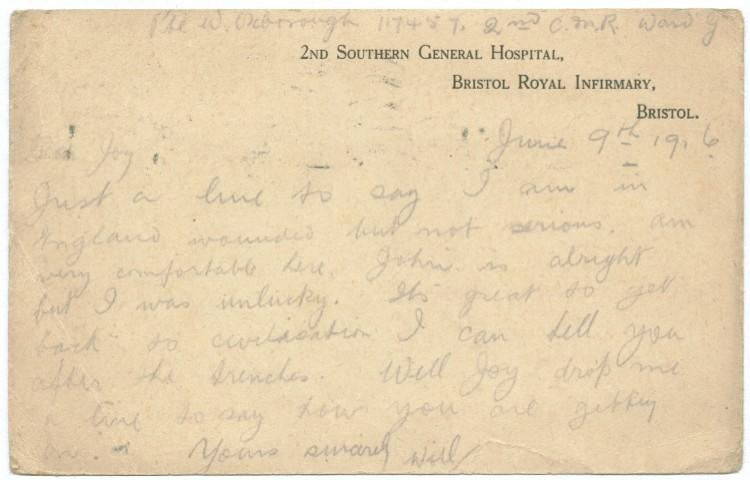 Pte W. Oxborough 117457. 2nd C.M.R. Ward G
2ND SOUTHERN GENERAL HOSPITAL,
BRISTOL ROYAL INFIRMARY,
BRISTOL.
June 9th 1916
Dear Joy
Just a line to say I am in
England wounded but not serious. am
very comfortable here. John is alright
but I was unlucky. Its great to get
back to civilisation I can tell you
after the trenches. Well Joy drop me
a line to say how you are getting
on. Yours sincerely Will